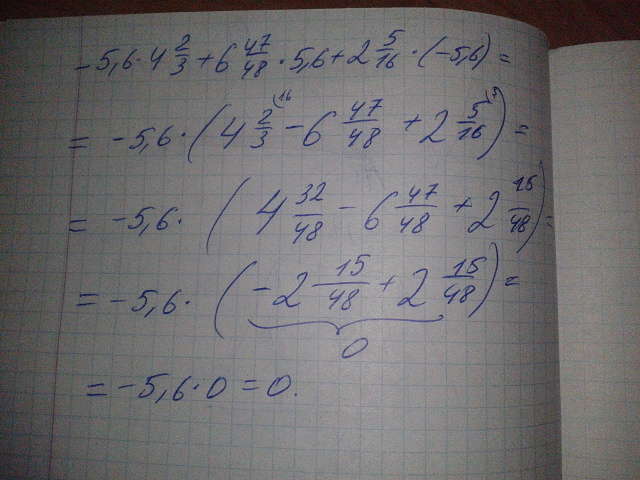 -5,6·4 2/3 + 6 47/48 · 5,6 + 2 5/16 · (-5,6) =
= -5,6 · (4 2/3 (16 - 6 47/48 + 2 5/16 (3) =
= -5,6 · (4 32/48 - 6 47/48 + 2 15/48) =
= -5,6 · (-2 15/48 + 2 15/48) =
0
= -5,6 · 0 = 0.